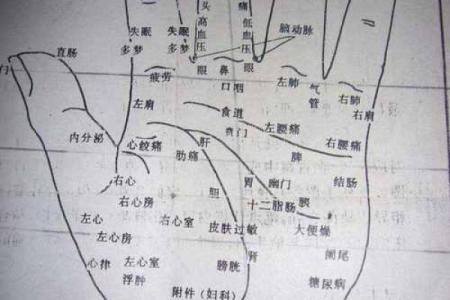 头
高
血
压
痛
低
血
压
失眠
多梦
失眠
多梦
脑动脉
直肠
门
疲劳
眼
鼻
口
咽
眼
左肺
气
管
右肺
右肩
左肩
食道
贲门
左腰痛
内分泌
心绞痛
肝
肋痛
脾
右腰痛
右心
胆
胃
幽门
结肠
右心房
十二脂肠
左心
右心室
皮肤过敏
大便燥
左心房
肾
阑尾
心律
左心室
膀胱
浮肿
糖尿病
附件(妇科)